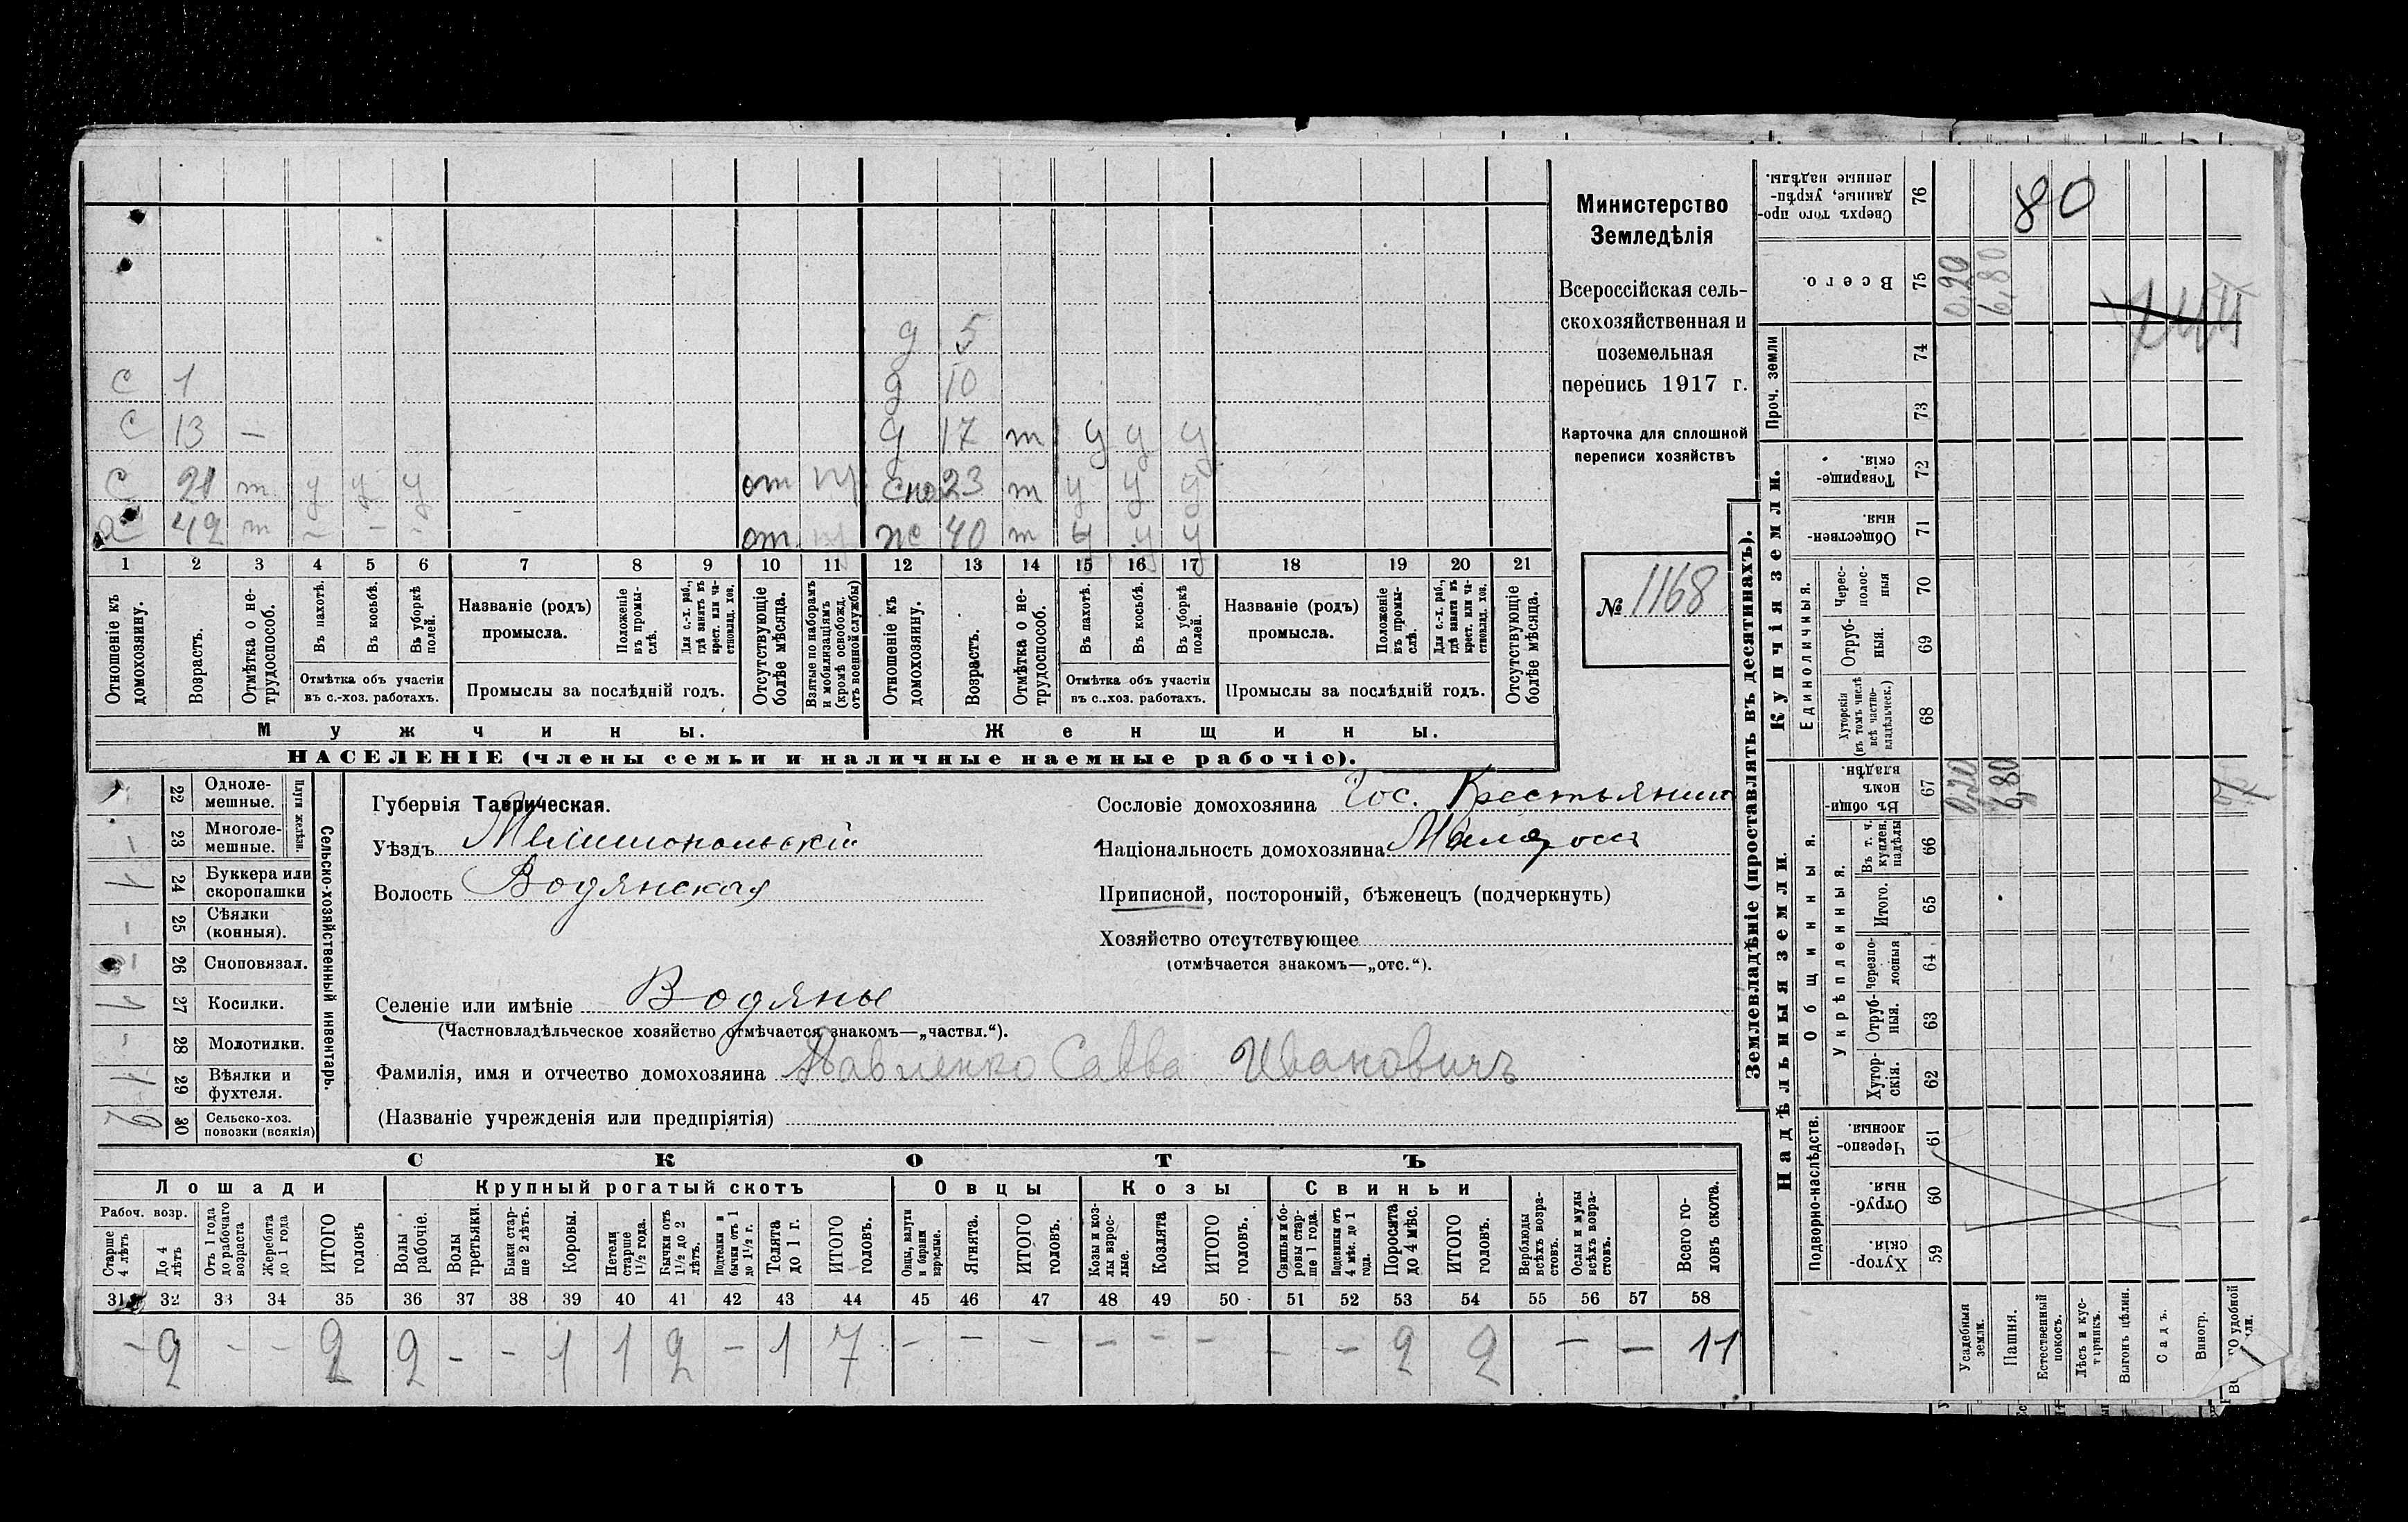 д 5
с 1 д 10
с 13 — д 17 т у у у
с 21 т у у у от сно 23 т у у у
42 т — — — от ж 40 т у у у
1 2 3 4 5 6 7 8 9 10 11 12 13 14 15 16 17 18 19 20 21
Отношеніе къ домохозяину.
Возрастъ.
Отмѣтка о не-трудоспособ.
Въ пахотѣ.
Въ косьбѣ.
Въ уборкѣ полей.
Отмѣтка объ участіи
въ с.-хоз. работахъ.
Названіе (родъ)
промысла.
Положеніе въ промы-слѣ.
Для с.-х. раб., гдѣ занятъ въ крест. или ча-стновлад. хоз.
Промыслы за послѣдній годъ.
Отсутствующіе болѣе мѣсяца.
Взятые по наборамъ и мобилизаціямъ (кромѣ освобожд. отъ военной службы)
Отношеніе къ домохозяину.
Возрастъ.
Отмѣтка о не-трудоспособ.
Въ пахотѣ.
Въ косьбѣ.
Въ уборкѣ полей.
Отмѣтка объ участіи
въ с.-хоз. работахъ.
Названіе (родъ)
промысла.
Положеніе въ промы-слѣ.
Для с.-х. раб., гдѣ занята въ крест. или ча-стновлад. хоз.
Промыслы за послѣдній годъ.
Отсутствующіе болѣе мѣсяца.
Мужчины. Женщины.
НАСЕЛЕНІЕ (члены семьи и наличные наемные рабочіе).
Министерство
Земледѣлія
Всероссійская сель-
скохозяйственная и
поземельная
перепись 1917 г.
Карточка для сплошной
переписи хозяйствъ
№ 1168
Сельско-хозяйственный инвентарь.
Плуги желѣзн.
22 Одноле-мешные.
— 23 Многоле-мешные.
1 24 Буккера или скоропашки
— 25 Сѣялки (конныя).
— 26 Сноповязал.
1 27 Косилки.
- 28 Молотилки.
1 29 Вѣялки и фухтеля.
2 30 Сельско-хоз. повозки (всякія)
Губернія Таврическая.
Уѣздъ Мелитопольскій
Волость Водянская
Селеніе или имѣніе Водяны
(Частновладѣльческое хозяйство отмѣчается знакомъ—„частвл.“).
Фамилія, имя и отчество домохозяина Павленко Савва Ивановичъ
(Названіе учрежденія или предпріятія)
Сословіе домохозяина Гос. Крестьянинъ
Національность домохозяина Малоросъ
Приписной, посторонній, бѣженецъ (подчеркнуть)
Хозяйство отсутствующее
(отмѣчается знакомъ—„отс.“).
СКОТЪ
Лошади Крупный рогатый скотъ Овцы Козы Свиньи
Рабоч. возр.
Старше 4 лѣтъ
До 4 лѣтъ
Отъ 1 года до рабочаго возраста
Жеребята до 1 года
ИТОГО головъ
Волы рабочіе.
Волы третьяки.
Быки стар-ше 2 лѣтъ.
Коровы.
Нетели старше 1½ года.
Бычки отъ 1½ до 2 лѣтъ.
Подтелки и бычки отъ 1 до 1½ г.
Телята до 1 г.
ИТОГО головъ.
Овцы, валухи и бараны взрослые.
Ягнята.
ИТОГО головъ.
Козы и коз-лы взрос-лые.
Козлята
ИТОГО головъ.
Свиньи и бо-ровы стар-ше 1 года.
Подсвинки отъ 4 мѣс. до 1 года.
Поросята до 4 мѣс.
ИТОГО головъ.
Верблюды всѣхъ возра-стовъ.
Ослы и мулы всѣхъ возра-стовъ.
Всего го-ловъ скота.
31 32 33 34 35 36 37 38 39 40 41 42 43 44 45 46 47 48 49 50 51 52 53 54 55 56 57 58
— 2 — — 2 2 - - 1 1 2 — 1 7 — — — — — — — — 2 2 — — 11
Землевладѣніе (проставлять въ десятинахъ).
Надѣльныя земли.
Купчія земли.
Проч. земли
Подворно-наслѣдств.
Общинныя.
Укрѣпленныя.
Единоличныя.
Сверхъ того про-данные, укрѣп-ленные надѣлы. 76 80
Всего. 75 0,20 6,80
74
73
Товарище-скія. 72
Обществен-ныя. 71
Черес-полос-ныя 70
Отруб-ныя. 69
Хуторскія (въ томъ числѣ всѣ частно-владѣльческ.) 68
Въ общи-номъ владѣн. 67 0,20 6,80
Въ т. ч. куплен. надѣлы 66
Итого. 65
Черезпо-лосныя 64
Отруб-ныя. 63
Хутор-скія. 62
Черезпо-лосныя. 61
Отруб-ныя. 60
Хутор-скія. 59
Усадебныя земли.
Пашня.
Естественный покосъ.
Лѣсъ и кус-тарникъ.
Выгонъ цѣлин.
Садъ.
Виногр.
удобной